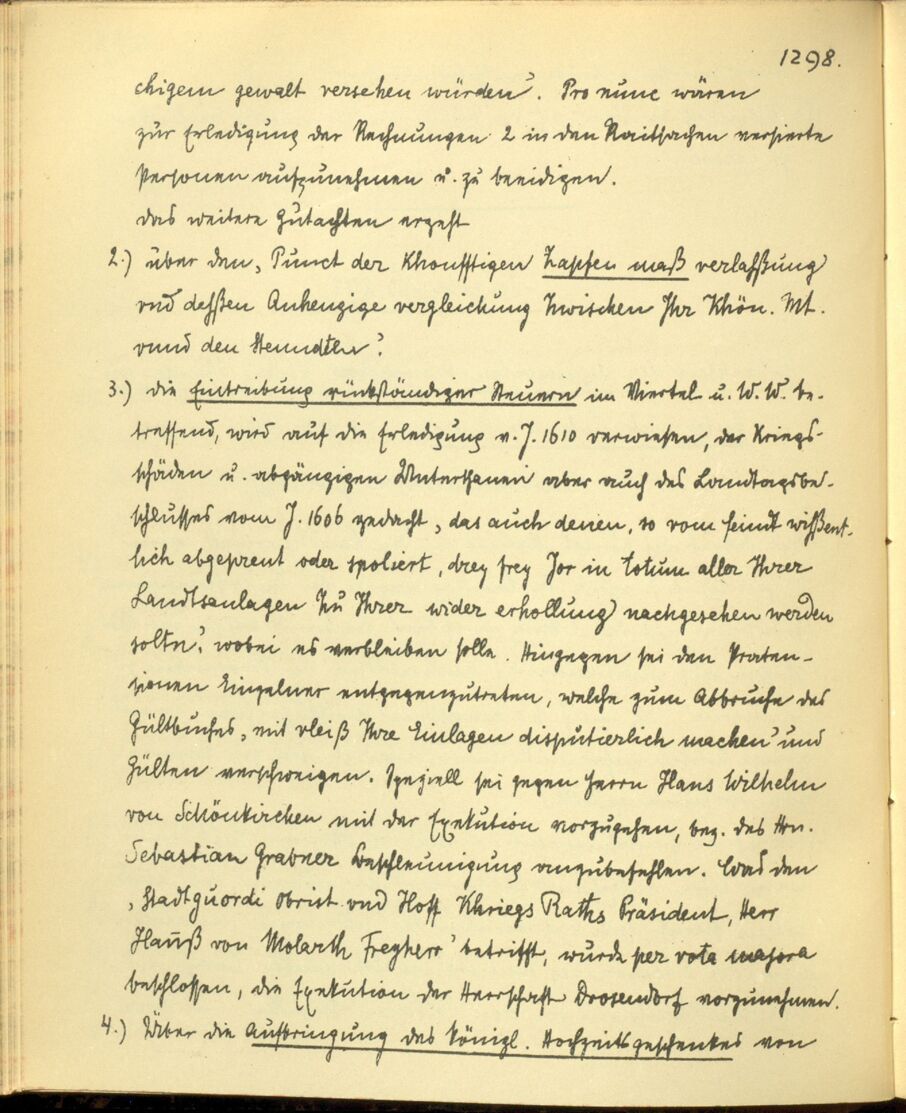 1298.
chigem gewalt versehen würden'. Pro nunc wären
zur Erledigung der Rechnungen 2 in den Raitsachen versierte
Personen aufzunehmen u. zu beeidigen.
Das weitere Gutachten ergeht
2.) über den, Punct der Khonfftigen Zapfen maß verlaßung
vnd deßen Anhengige vergleichung Zwischen Ihr Khön. Mt.
vnnd den Stenndtn'.
3.) die Eintreibung rückständiger Steuern im Viertel u. W. W. be-
treffend, wird auf die Erledigung v. J. 1610 verwiesen, der Kriegs-
schäden u. abgängigen Unterthanen aber auch des Landtagsbe-
schlusses vom J. 1606 gedacht, das auch denen, so vom feindt wißent-
lich abgeprent oder spoliert, drey frey Jar in totum aller Ihrer
Landtsanlagen Zu Ihrer wider erhollung nachgesehen werden
soltn', wobei es verbleiben solle. Hingegen sei den Präten-
sionen Einzelner entgegenzutreten, welche zum Abbruche des
Gültbuches, mit vleiß Ihre Einlagen disputierlich machen' und
Gülten verschweigen. Speziell sei gegen Herrn Hans Wilhelm
von Schönkirchen mit der Exekution vorzugehen, bez. des Hrn.
Sebastian Grabner Beschleunigung anzubefehlen. Was den
, Stadtguordi Obrist vnd Hoff Khriegs Raths Präsident, Herr
Hanß von Molarth Freyherr' betrifft, wurde per vota majora
beschlossen, die Exekution der Herrschaft Drosendorf vorzunehmen.
4.) Über die Aufbringung des königl. Hochzeitsgeschenkes von